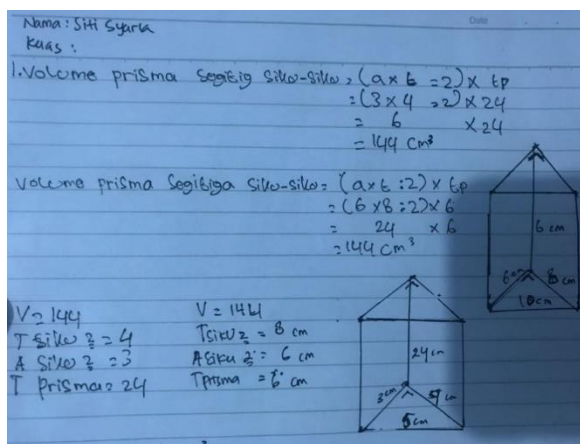 Date
Nama: Siti Syarla
Kelas :
1. Volume prisma segitig siku-siku = (a x t : 2) x tp
= (3 x 4 : 2) x 24
= 6 x 24
= 144 cm³
Volume prisma segitiga siku-siku = (a x t : 2) x tp
= (6 x 8 : 2) x 6
= 24 x 6
= 144 cm³
6 cm
6 cm
8 cm
10 cm
V = 144
T siku2 = 4
A siku2 = 3
T prisma = 24
V = 144
T siku2 = 8 cm
A siku2 = 6 cm
T prisma = 6 cm
24 cm
3 cm
4 cm
5 cm